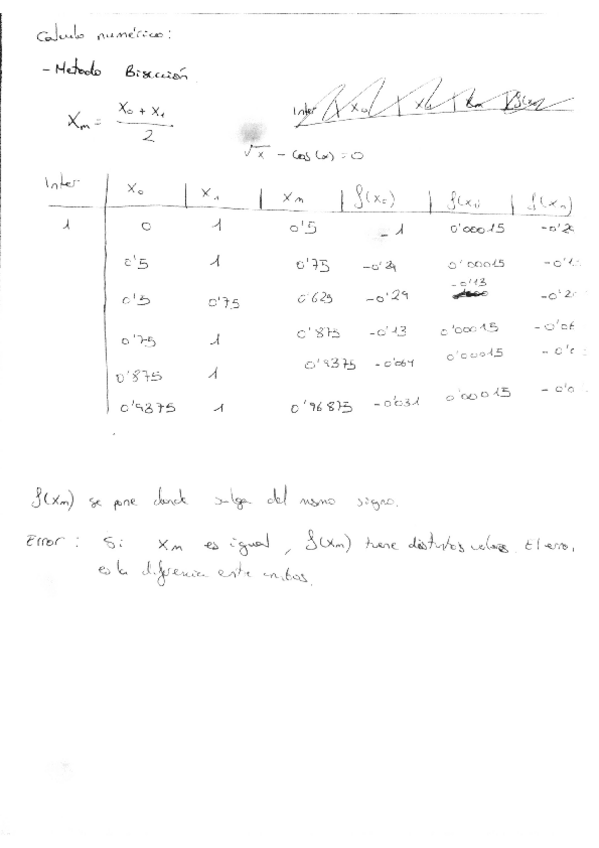 Calculo numérico:
- Metodo Bisección
Xm = X0 + X1 / 2
Inter X0 X1 Xm
√x - cos(x) = 0
Inter | X0 | X1 | Xm | f(X0) | f(X1) | f(Xm)
1 0 1 0'5 - 1 0'00015 -0'2
0'5 1 0'75 -0'29 0'00015 -0'1
-0'13
0'5 0'75 0'625 -0'29 -0'2
0'75 1 0'875 -0'13 0'00015 -0'06
0'875 1 0'9375 -0'064 0'00015 -0'0
0'9375 1 0'96875 -0'031 0'00015 -0'0
f(Xm) se pone donde salga del mismo signo.
Error: Si Xm es igual, f(Xm) tiene distintos valores. El error
es la diferencia entre ambos.